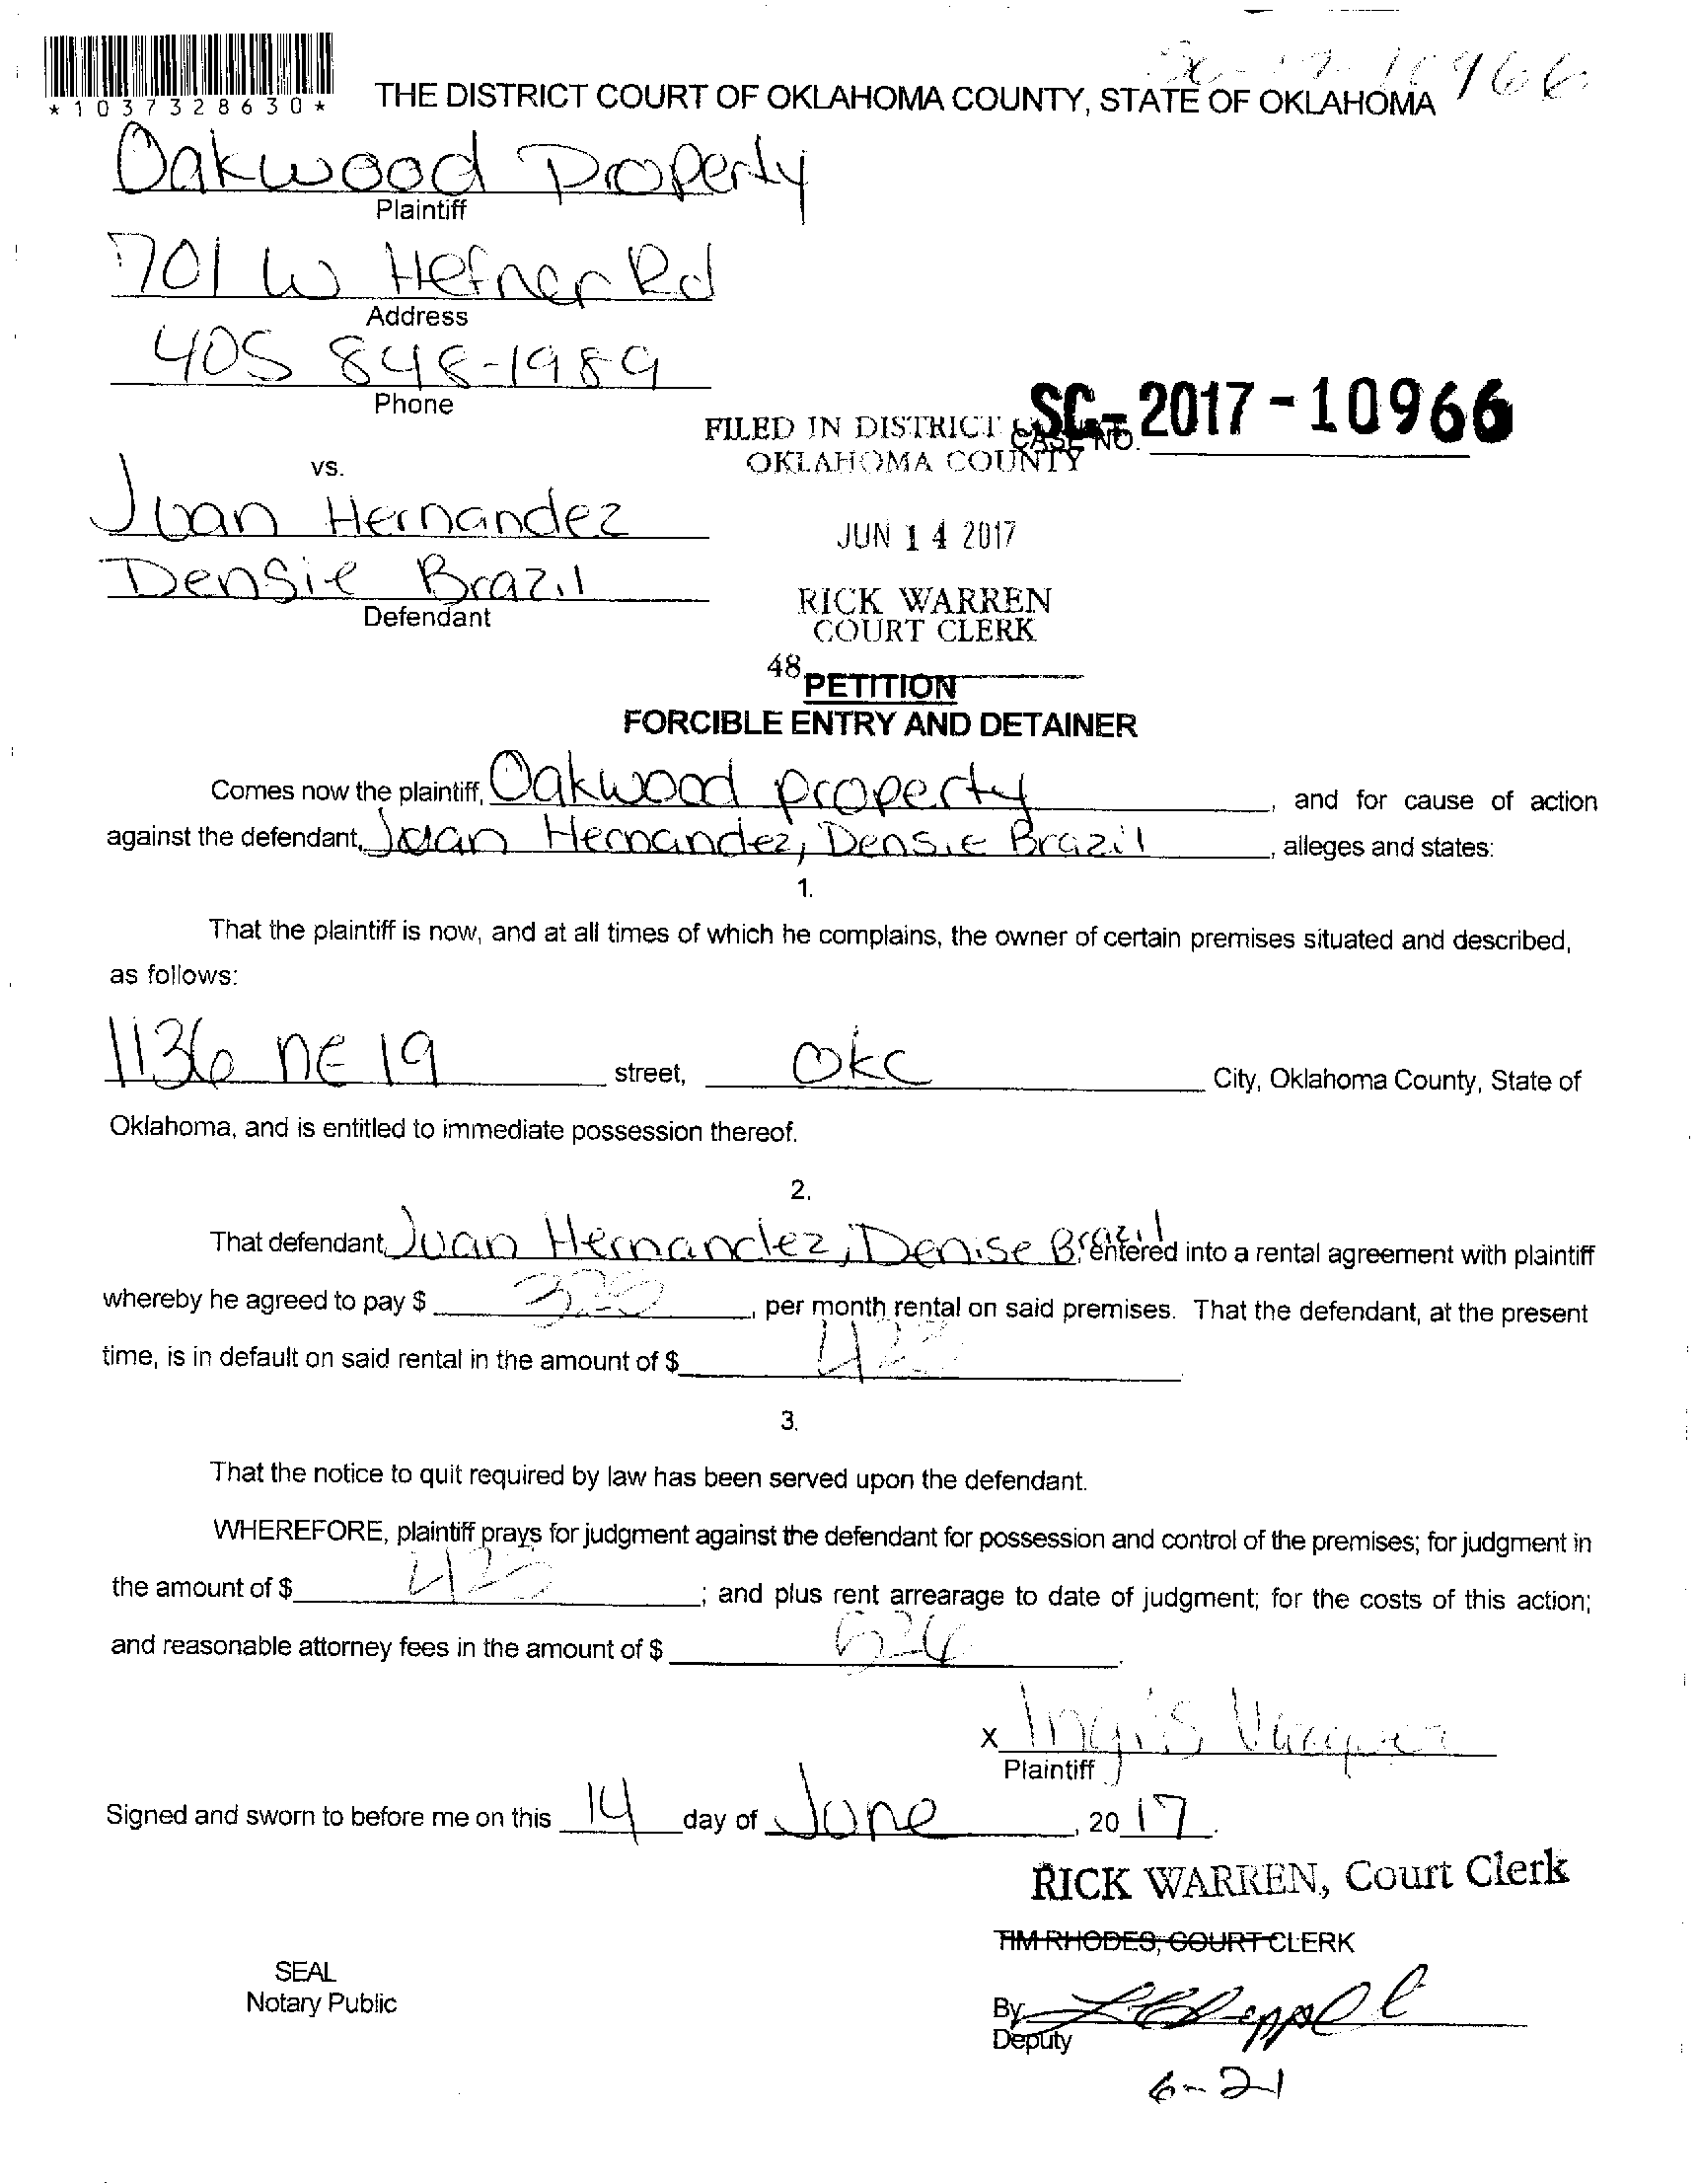 *1037328630*
THE DISTRICT COURT OF OKLAHOMA COUNTY, STATE OF OKLAHOMA
Oakwood Property
Plaintiff
701 W Hefner Rd
Address
405 848-1989
Phone
SC-2017-10966
FILED IN DISTRICT
CASE NO.
OKLAHOMA COUNTY
vs.
Juan Hernandez
JUN 14 2017
Densie Brazil
Defendant
RICK WARREN
COURT CLERK
48
PETITION
FORCIBLE ENTRY AND DETAINER
Comes now the plaintiff, Oakwood property, and for cause of action
against the defendant, Juan Hernandez, Densie Brazil, alleges and states:
1.
That the plaintiff is now, and at all times of which he complains, the owner of certain premises situated and described,
as follows:
1136 NE 19 street, OKC City, Oklahoma County, State of
Oklahoma, and is entitled to immediate possession thereof.
2.
That defendant, Juan Hernandez, Denise Brazil entered into a rental agreement with plaintiff
whereby he agreed to pay $ , per month rental on said premises. That the defendant, at the present
time, is in default on said rental in the amount of $
3.
That the notice to quit required by law has been served upon the defendant.
WHEREFORE, plaintiff prays for judgment against the defendant for possession and control of the premises; for judgment in
the amount of $ ; and plus rent arrearage to date of judgment; for the costs of this action;
and reasonable attorney fees in the amount of $
x
Plaintiff
Signed and sworn to before me on this 14 day of June, 2017.
RICK WARREN, Court Clerk
TIM RHODES, COURT CLERK
SEAL
Notary Public
By
Deputy
6-21